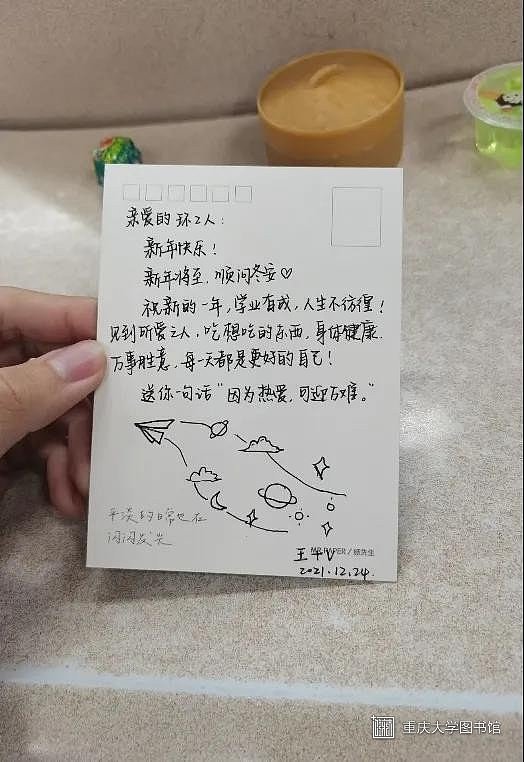 亲爱的环工人：
新年快乐！
新年将至，顺问冬安♡
祝新的一年，学业有成，人生不彷徨！
见到所爱之人，吃想吃的东西，身体健康.
万事胜意，每一天都是更好的自己！
送你一句话“因为热爱，可迎万难。”
平淡的日常也在
闪闪发光
MR.PAPER / 纸先生
2021.12.24.
重庆大学图书馆